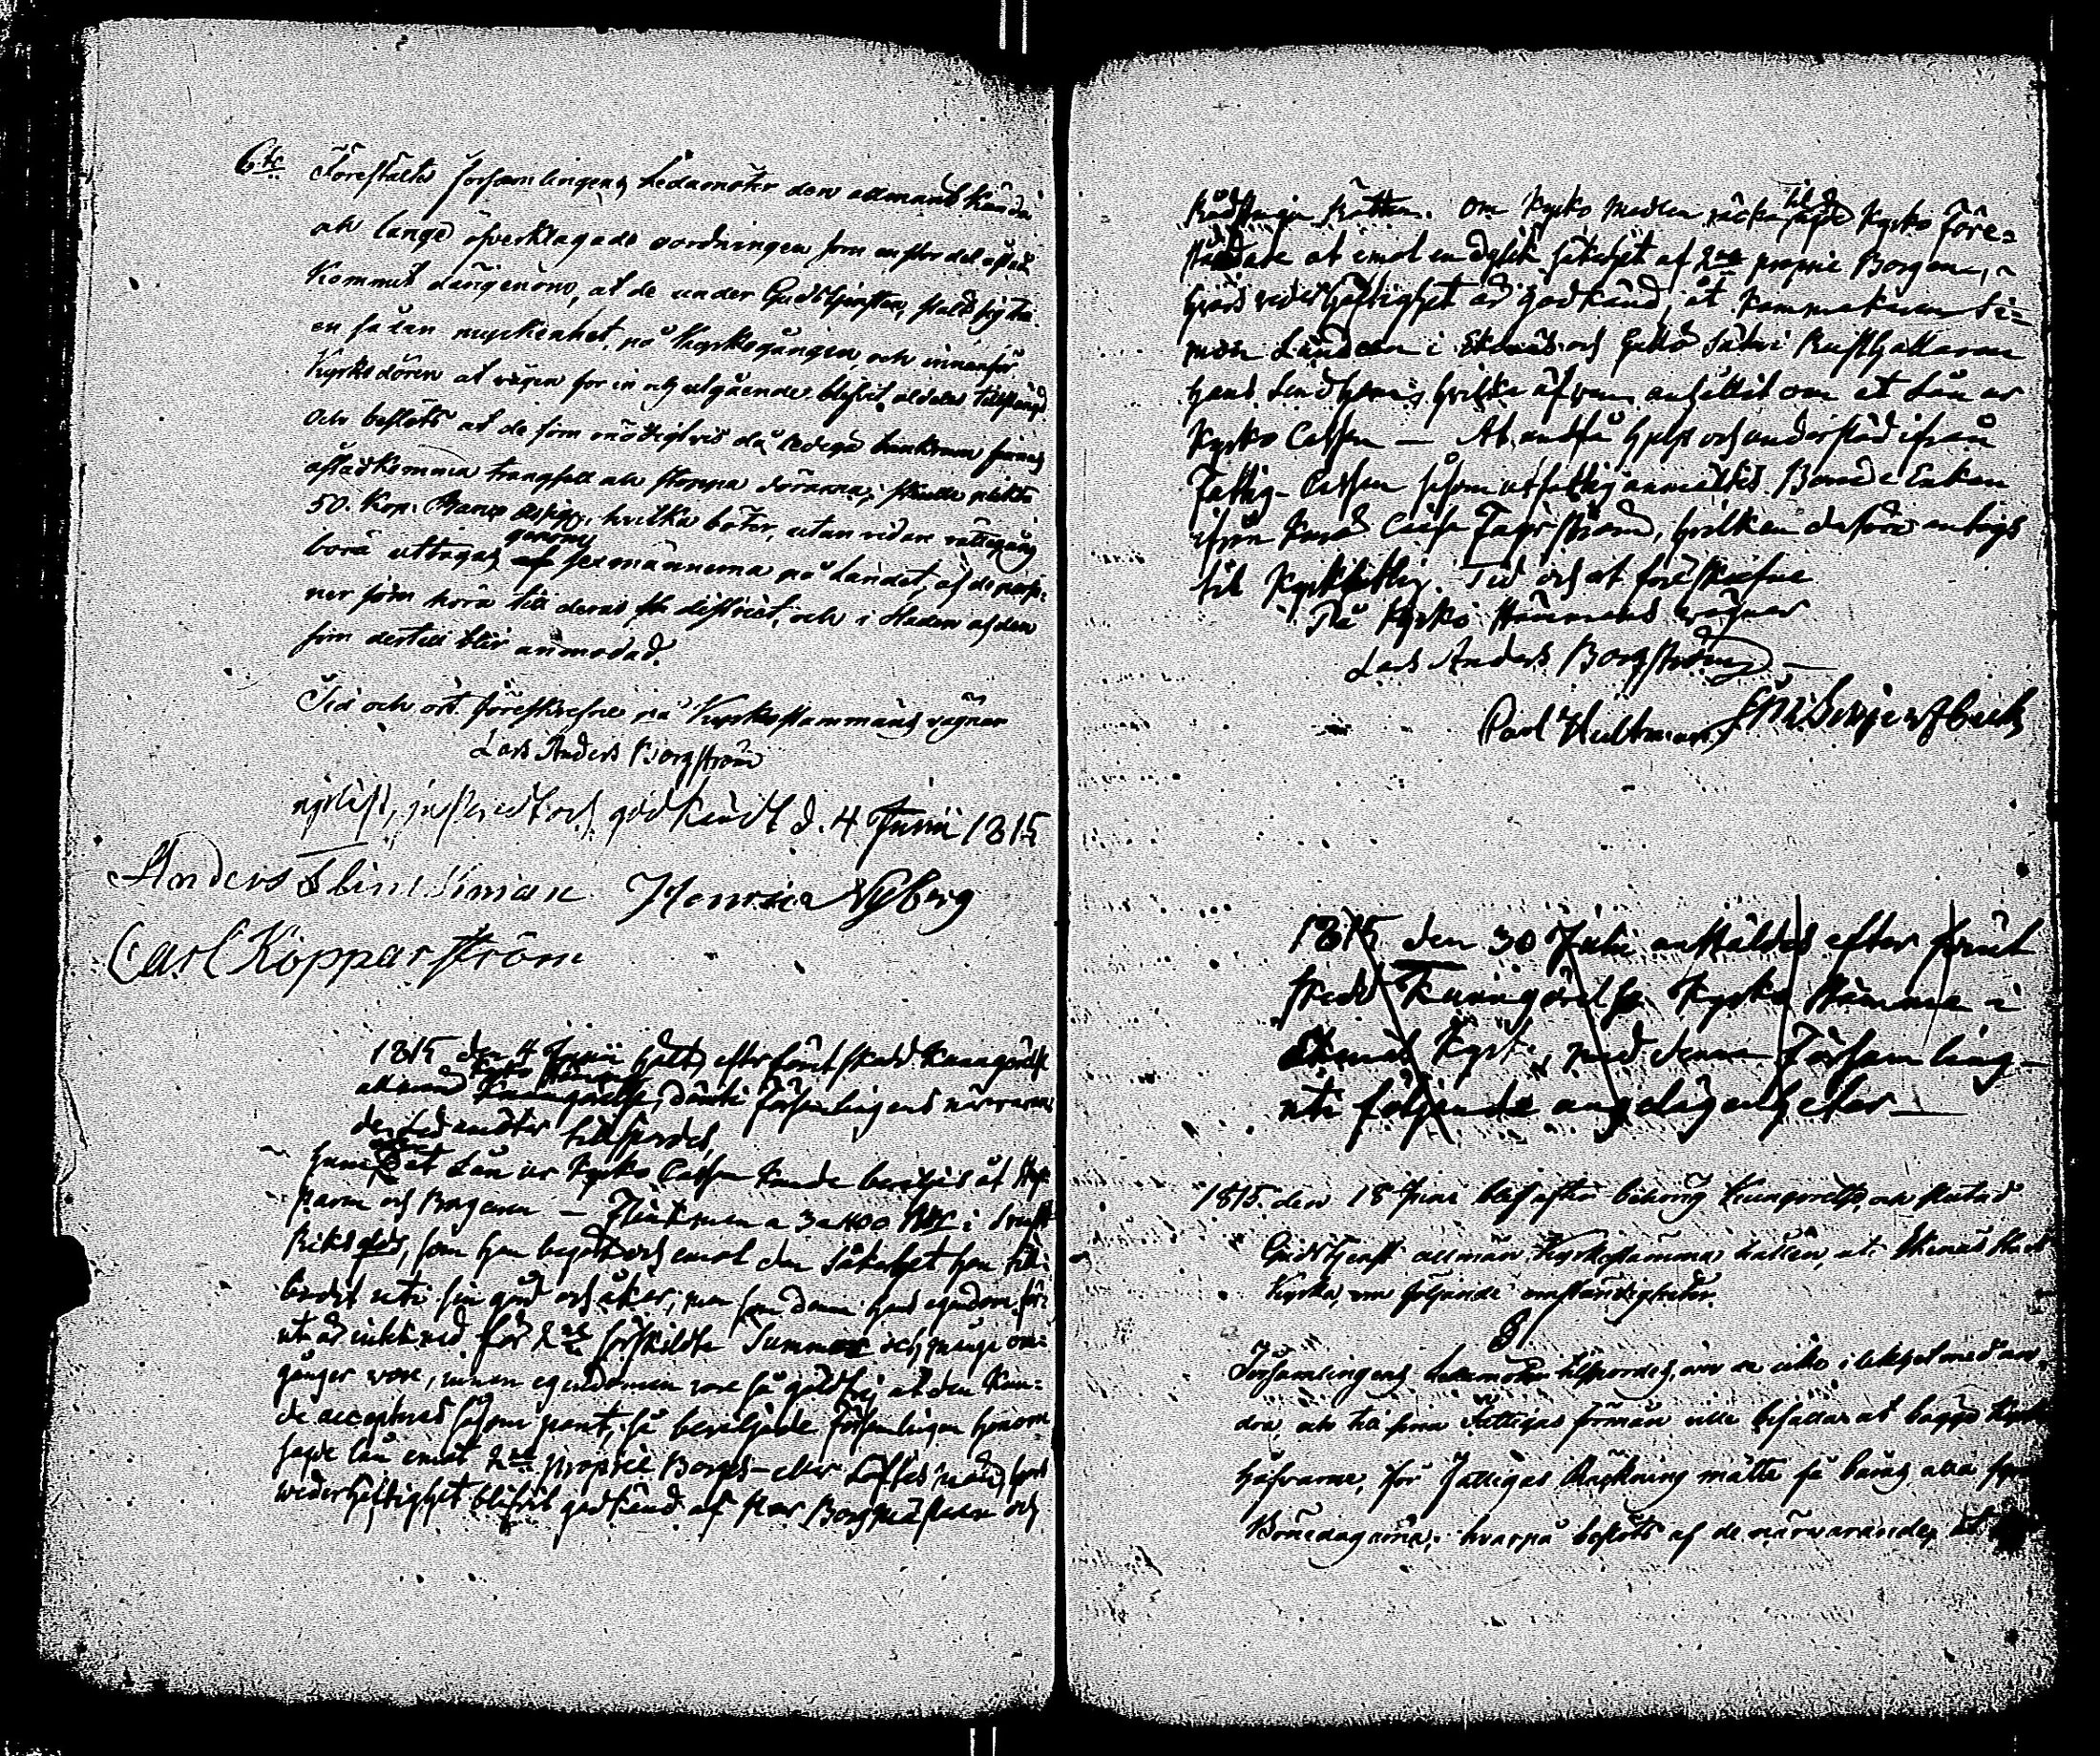 6te Förestältes församlingens Ledamöter den allmänt kända
och länge öfverklagade oordningen som en stor del åstad
kommit därigenom, at de under Gudstjensten stält sig til
en sådan myckenhet på Kyrkogången och innanför
Kyrko dören at vägen för in och utgående blifvit aldeles tillstängd
och beslöts at de som onödigtvis då lediga bänkrum finnas
åstadkomma trängsel och stoppa dörarna, skulle plikta
50. Kop. Banco hvilka böter, utan vidare rättegång
böra uttagas genom sexmännerna på Landet, af de perso-
ner som höra till deras district, och i Staden af den
som dertill blir anmodad.
Tid och ort förskrefne på Kyrkostämmans vägnar
Lars Anders Borgström
uplåst, justeradt och godkändt d. 4 Junii 1815
Anders Flinckman Henric Nyberg
Carl Kopparström
1815 den 4 Junii hölts efter förut skedd kungörelse
allmänd Kyrko Stämma, därtil församlingens närvaran-
de Ledamöter tillspordes,
huruvida et Lån ur Kyrko Cassan kunde beviljas åt Skep-
paren och Borgaren — Flinkman a 3 a 400 i Svenskt
Riksgäld, som han begärt och emot den säkerhet han till-
biudit uti sin gård och åker; men som denna hans egendom för-
ut är intecknad för 2ne särskildte Summor och många om-
gånger vore, innan egendomen vore så gäldfrej at den kun-
de accepteras såsom pant, så beviljade församlingen honom
sagde lån emot 2ne proprie Borgos- eller Löftes män, hvars
wederhäftighet blifvit godkänd af Herr Borgmästaren och
Rådstugu Rätten. Om Kyrko Medlen räcka til sagde Kyrko före-
ståndare at emot en dylik säkerhet af 2ne proprie Borgen,
hvars vederhäftighet är godkänd, åt Kammakaren Si-
mon Lindeen i Ekenäs och Rusthållaren
hans Lindholm, hvilka äfven anhållit om et Lån ur
Kyrko Cassan — At undfå hjelp och understöd ifrån
Fattig-Cassan såsom utfattig anmältes Bonde Enkan
ifrån Caisa Fagerström, hvilken derföre antogs
till Kyrkfattig. Tid och ort förskrefne
På Kyrko Stämmans vägnar
Lars Anders Borgström
Carl Hultman
1815 den 30 Julii anställdes efter förut
skedd Kungörelse Kyrko Stämma i
Ekenäs Kyrka, med denna Församling
uti följande angelägenheter —
1815. den 18 Junii blef efter behörig Kungörelse, och slutad
Gudstjenst allmän Kyrkostämma hållen, uti Ekenäs Stads
Kyrka, om följande omständigheter.
§
Församlingens Ledamöter tillspordes, om de icke i likhet med an-
dra, och till sina Fattigas förmån ville befalla at bägge Kyrk-
håfvarne, för Fattigas Räkning måtte få bäras alla fyra
Bönedagarna; hvarpå beslöts af de närwarande, at